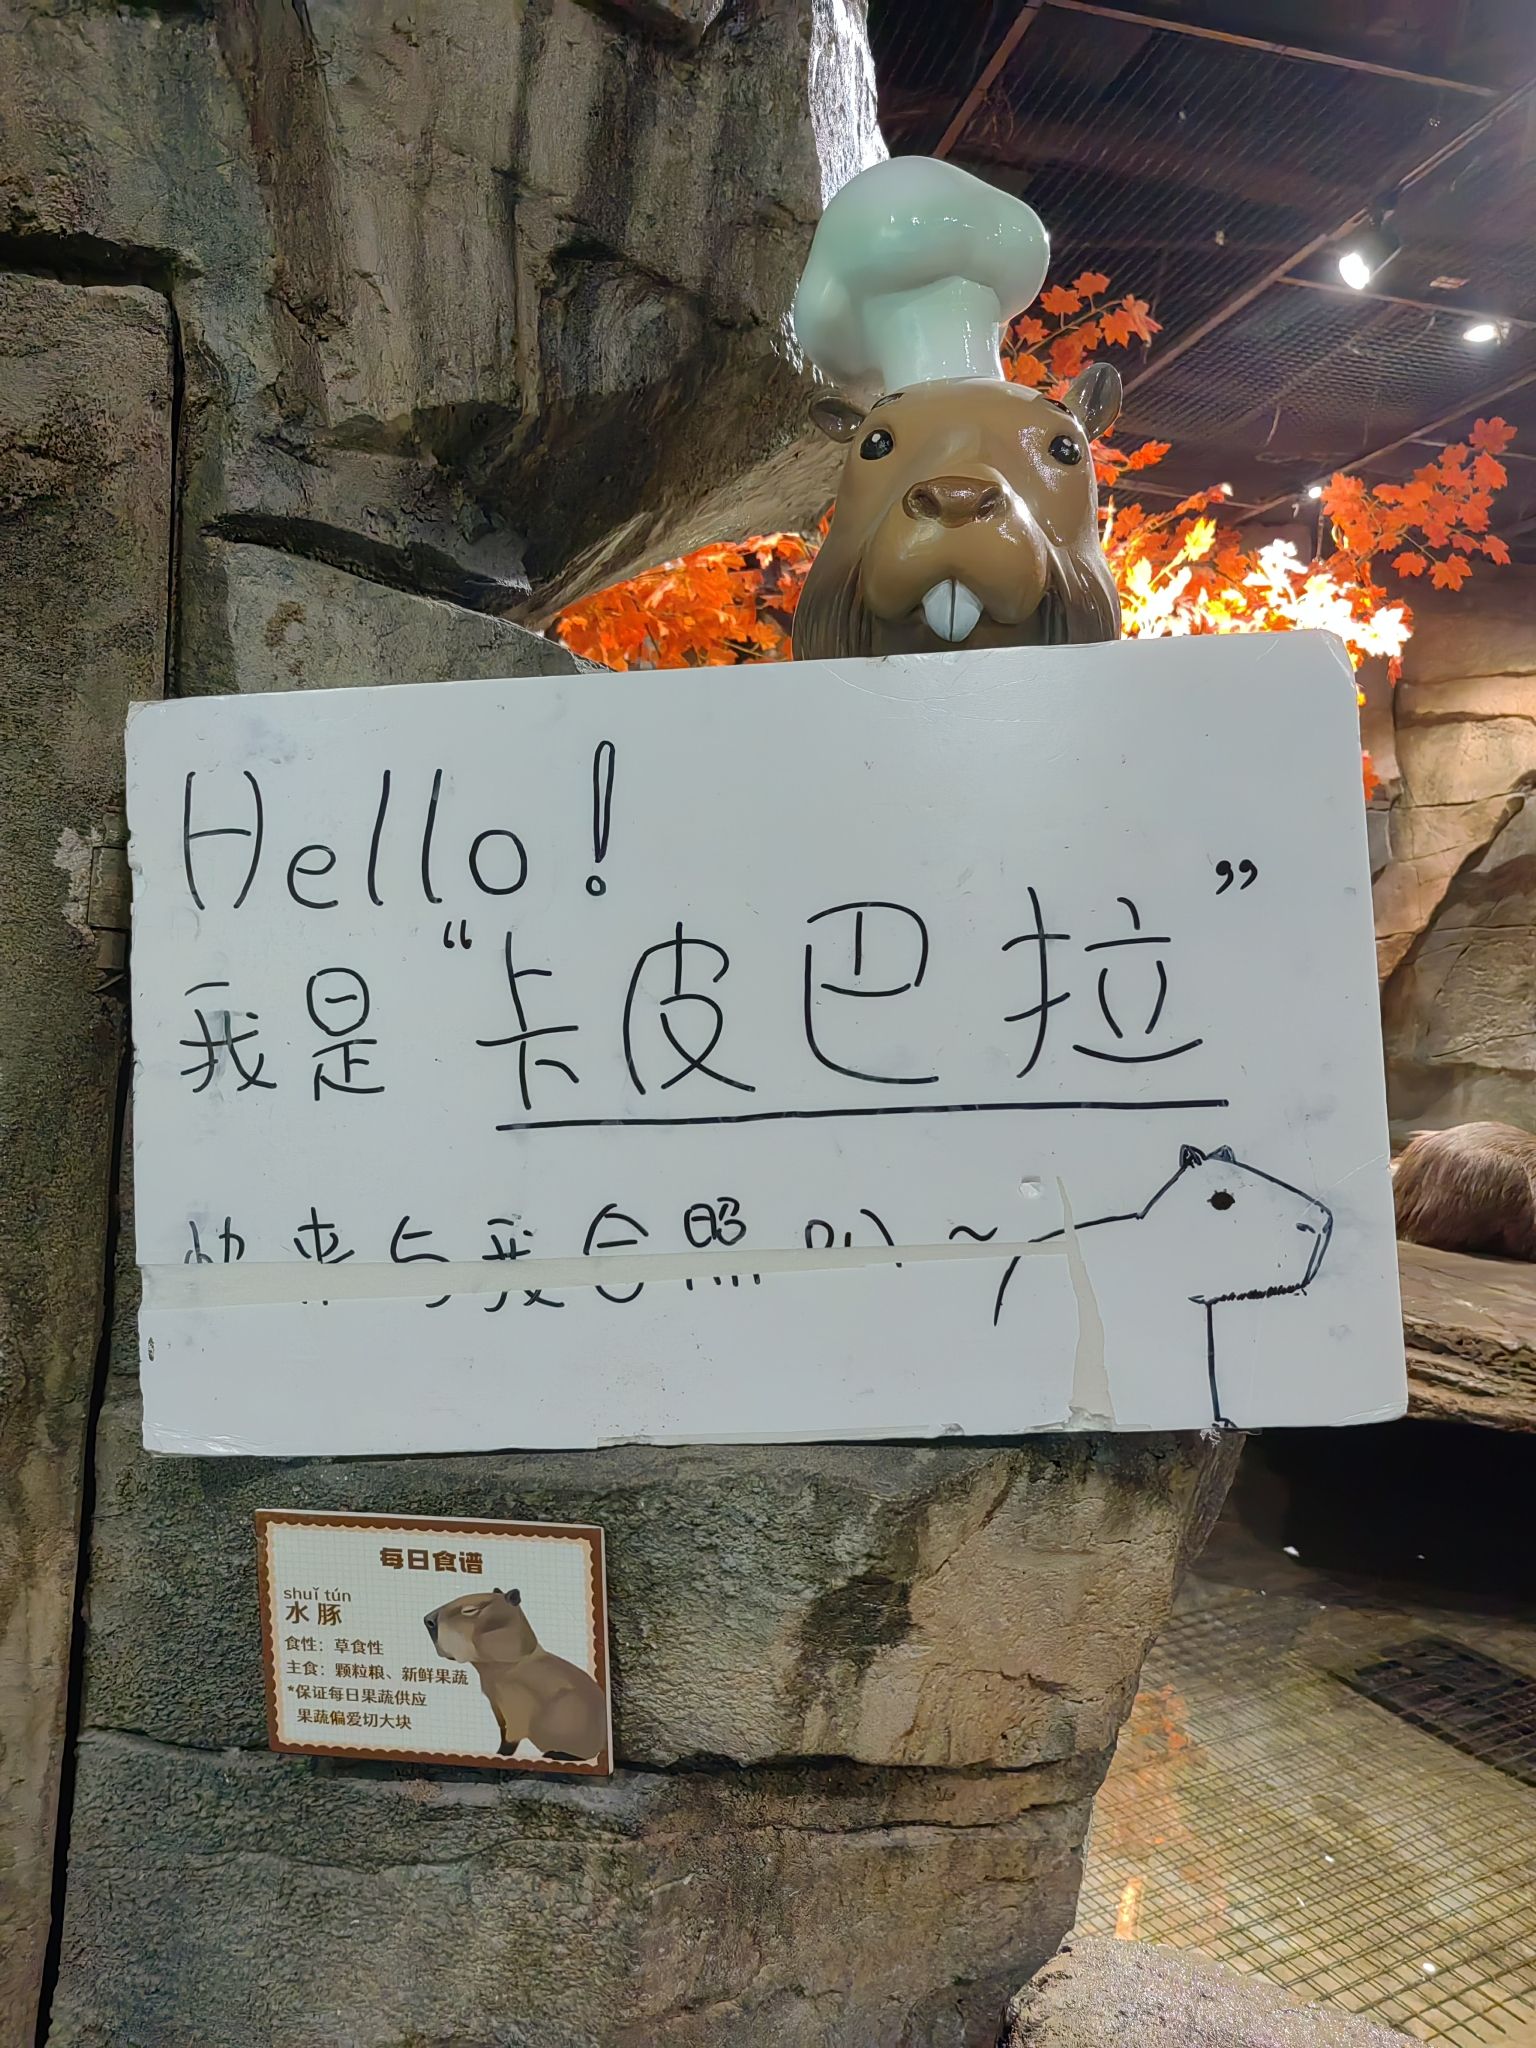 Hello!
我是“卡皮巴拉”
快来与我合照叭~
每日食谱
shuǐ tún
水豚
食性：草食性
主食：颗粒粮、新鲜果蔬
*保证每日果蔬供应
果蔬偏爱切大块